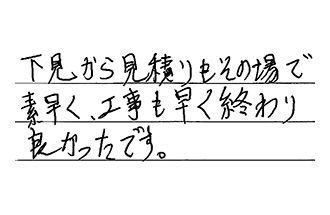 下見から見積りもその場で
素早く、工事も早く終わり
良かったです。